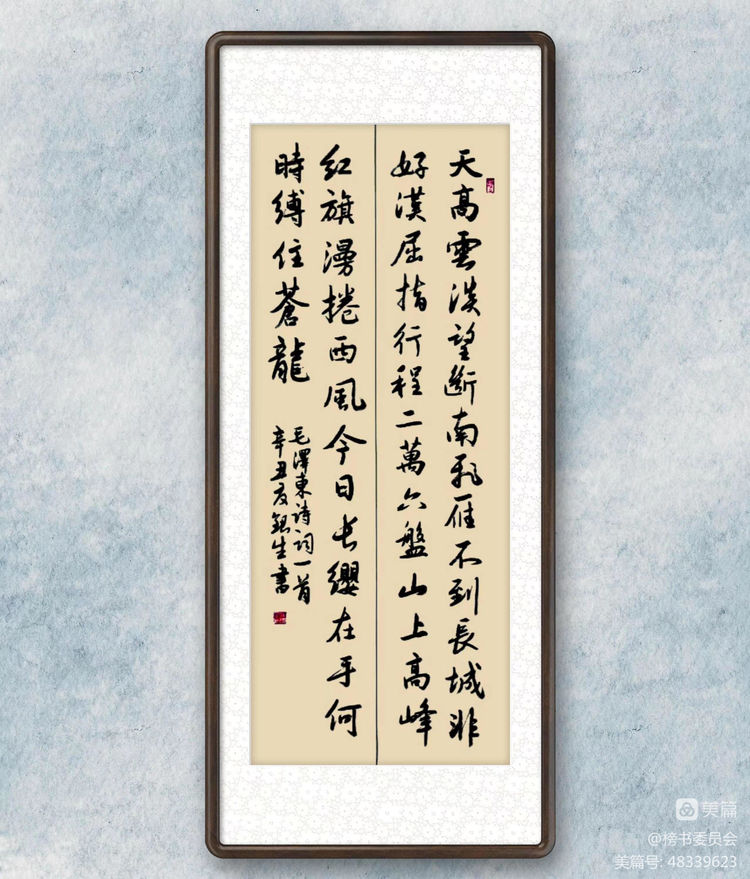 天高雲淡望斷南飛雁不到長城非
好漢屈指行程二萬六盤山上高峰
紅旗漫捲西風今日长纓在手何
時縛住蒼龍
毛澤東詩詞一首
辛丑夏銀生書
美篇
@榜书委员会
美篇号: 48339623